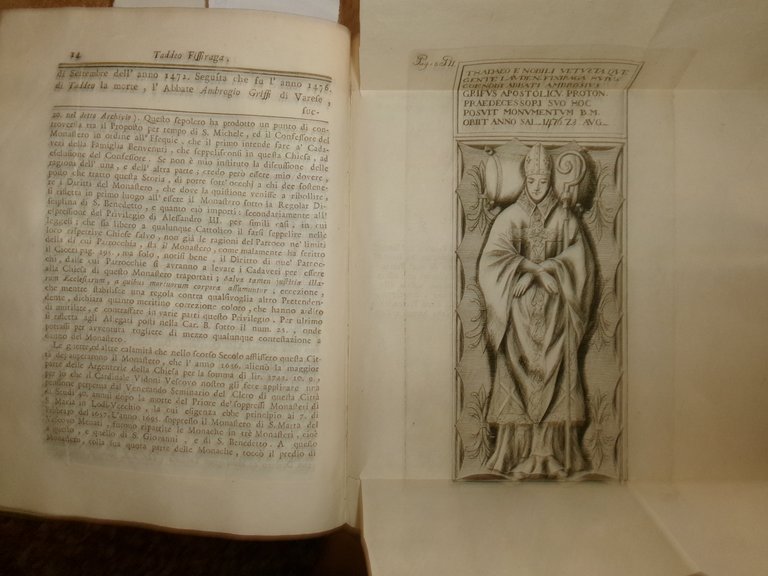 14 Taddeo Fissiraga.
di Settembre dell' anno 1472. Seguita che fu l' anno 1476.
di Taddeo la morte, l' Abbate Ambrogio Griffi di Varese,
suc-
no. nel detto Archivio). Questo sepolcro ha prodotto un punto di con-
troversia tra il Proposto per tempo di S. Michele, ed il Confessore del
Monastero in ordine all' Esequie, che il primo intende fare a' Cada-
veri della Famiglia Benvenuti, che seppelisconsi in questa Chiesa, ad
esclusione del Confessore. Se non è mio instituto la discussione delle
ragioni dell' una, e dell' altra parte; credo però essere mio dovere,
posto che tratto questa Storia, di porre sott' occhj a chi dee sostene-
re i Diritti del Monastero, che dove la quistione venisse a ribollire,
si rifletta in primo luogo all' essere il Monastero sotto la Regolar Di-
sciplina di S. Benedetto, e quanto ciò importi; secondariamente all'
espressione del Privilegio di Alessandro III. per simili casi; in cui
leggesi; che sa libero a qualunque Cattolico il farsi seppelire nelle
loro rispettive Chiese salvo, non già le ragioni del Parroco ne' limiti
della di cui Parrocchia, sta il Monastero, come malamente ha scritto
il Ciceri pag. 195., ma solo, notisi bene, il Diritto di que' Parroc-
chi, dalle cui Parrocchie si avranno a levare i Cadaveri per essere
alla Chiesa di questo Monastero trasportati; salva tamen justitia illa-
rum Ecclesiarum, a quibus mortuorum corpora assumuntur: eccezione,
che mentre stabilisce una regola contra qualsivoglia altro Pretenden-
dente, dichiara quanto meritino correzione coloro, che hanno ardito
di mutilare, e contrastare in varie parti questo Privilegio. Per ultimo
si rifletta agli Allegati posti nella Car. B. sotto il num. 25., onde
potrassi per avventura togliere di mezzo qualunque contestazione a
danno del Monastero.
Le guerre, ed altre calamità che nello scorso Secolo afflissero questa Cit-
tà aggravarono il Monastero, che l' anno 1656. alienò la maggior
parte delle Argenterie della Chiesa per la somma di lir. 3722. 10. 9.,
per lo che il Cardinale Vidoni Vescovo nostro gli fece applicare una
pensione perpetua del Venerando Seminario del Clero di questa Città
di Scudi 40. annui dopo la morte del Priore de' soppressi Monasterj di
S. Maria in Lodi-Vecchio, la cui eligenza ebbe principio ai 7. di
Febbrajo del 1657. L' anno 1695. soppresso il Monastero di S. Marta del
Vescovo Menati, furono ripartite le Monache in tre Monasterj, cioè
a questo, e quello di S. Giovanni, e di S. Benedetto. A questo
Monastero, colla sua quota parte delle Monache, toccò il predio di
THADAEO E NOBILI VETVSTA QVE
GENTE LAVDEN. FISIRAGA HVIVS
COENOBII ABBATI AMBROSIVS
GRIFVS APOSTOLICV. PROTON.
PRAEDECESSORI SVO HOC
POSVIT MONVMENTVM B.M.
OBIIT ANNO SAL. 1476 23 AVG.